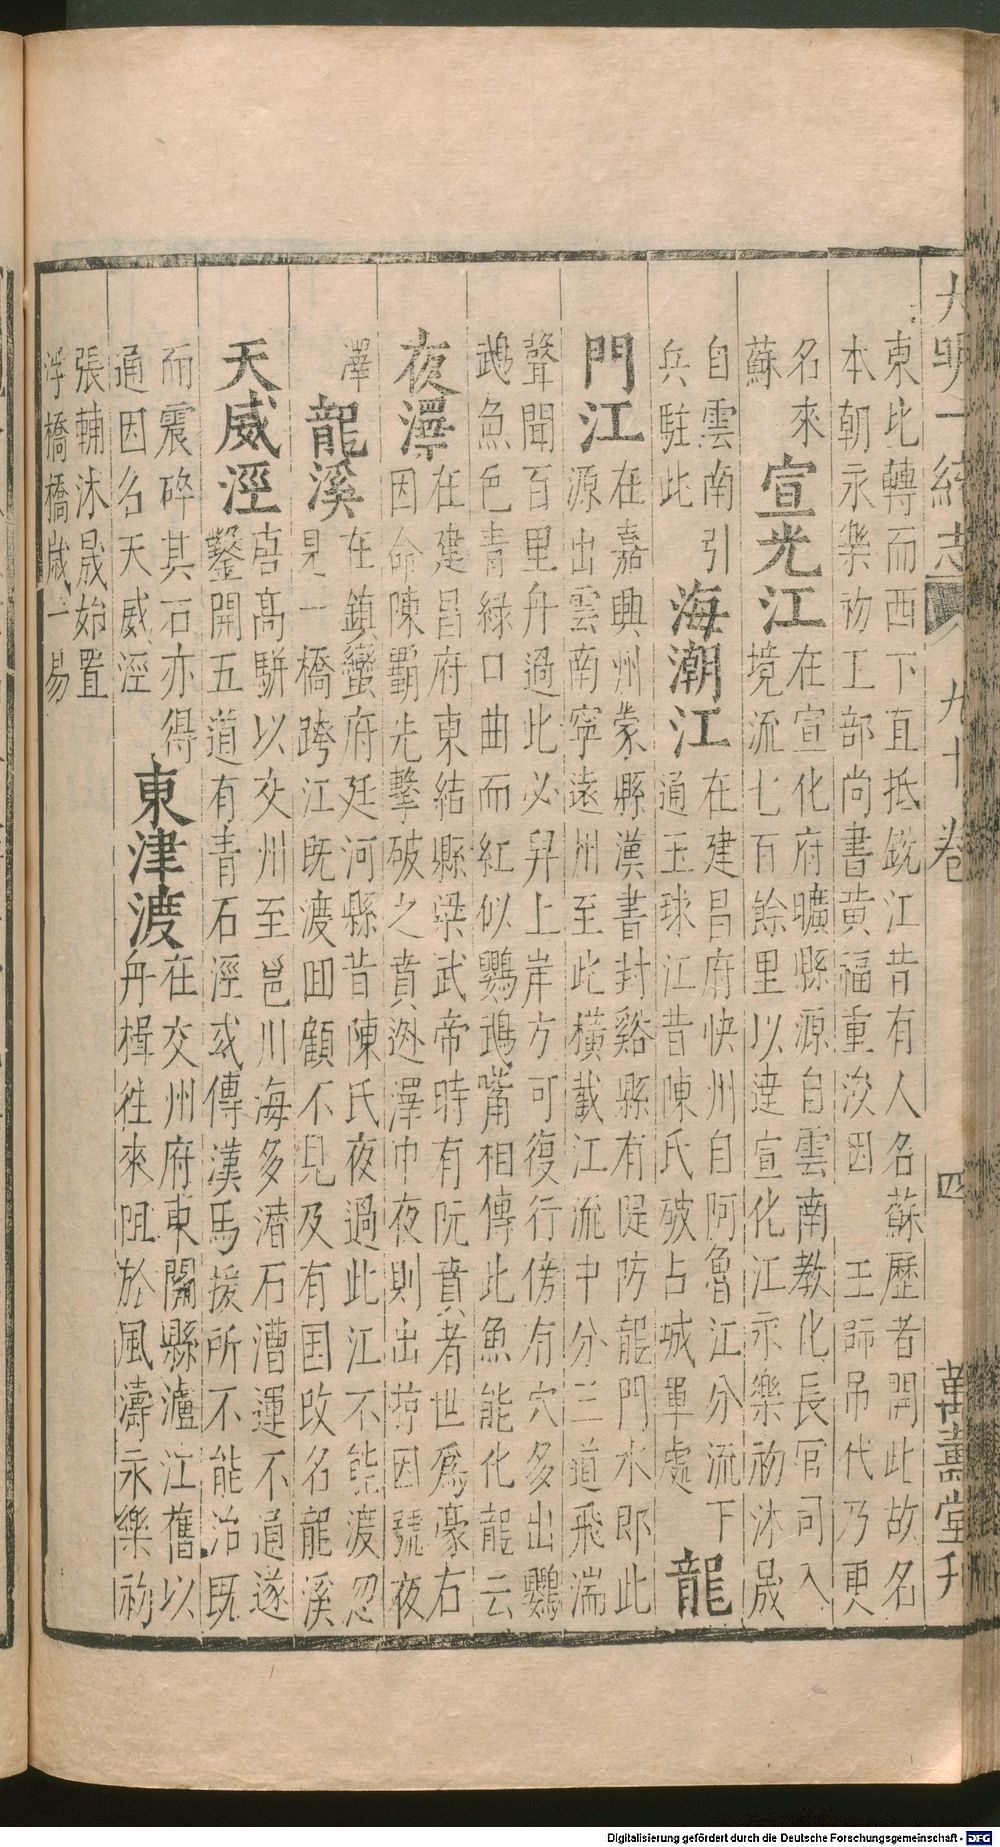 大明一統志 九十卷 四 萬壽堂刋
東北轉而西下直抵銳江昔有人名蘇歷者開此故名
本朝永樂初工部尚書黃福重浚因 王師吊伐乃更
名來
蘇
宣光江
在宣化府曠縣源自雲南教化長官司入
境流七百餘里以達宣化江永樂初沐晟
自雲南引
兵駐此
海潮江
在建昌府快州自阿魯江分流下
通玉球江昔陳氏破占城軍處
龍
門江
在嘉興州蒙縣漢書封谿縣有隄防龍門水即此
源出雲南寧遠州至此橫截江流中分三道飛湍
聲聞百里舟過此必舁上岸方可復行傍有穴多出鸚
鵡魚色青綠口曲而紅似鸚鵡觜相傳此魚能化龍云
夜澤
在建昌府東結縣梁武帝時有阮賁者世爲豪右
因命陳霸先擊破之賁迯澤中夜則出掠因號夜
澤
龍溪
在鎮蠻府廷河縣昔陳氏夜過此江不能渡忽
見一橋跨江既渡回顧不見及有国改名龍溪
天威涇
唐高駢以交州至邕川海多潛石漕運不通遂
鑿開五道有青石涇或傳漢馬援所不能治既
而震碎其石亦得
通因名天威涇
東津渡
在交州府東關縣瀘江舊以
舟楫徃來阻於風濤永樂初
張輔沐晟始置
浮橋橋歲一易
Digitalisierung gefördert durch die Deutsche Forschungsgemeinschaft - DFG